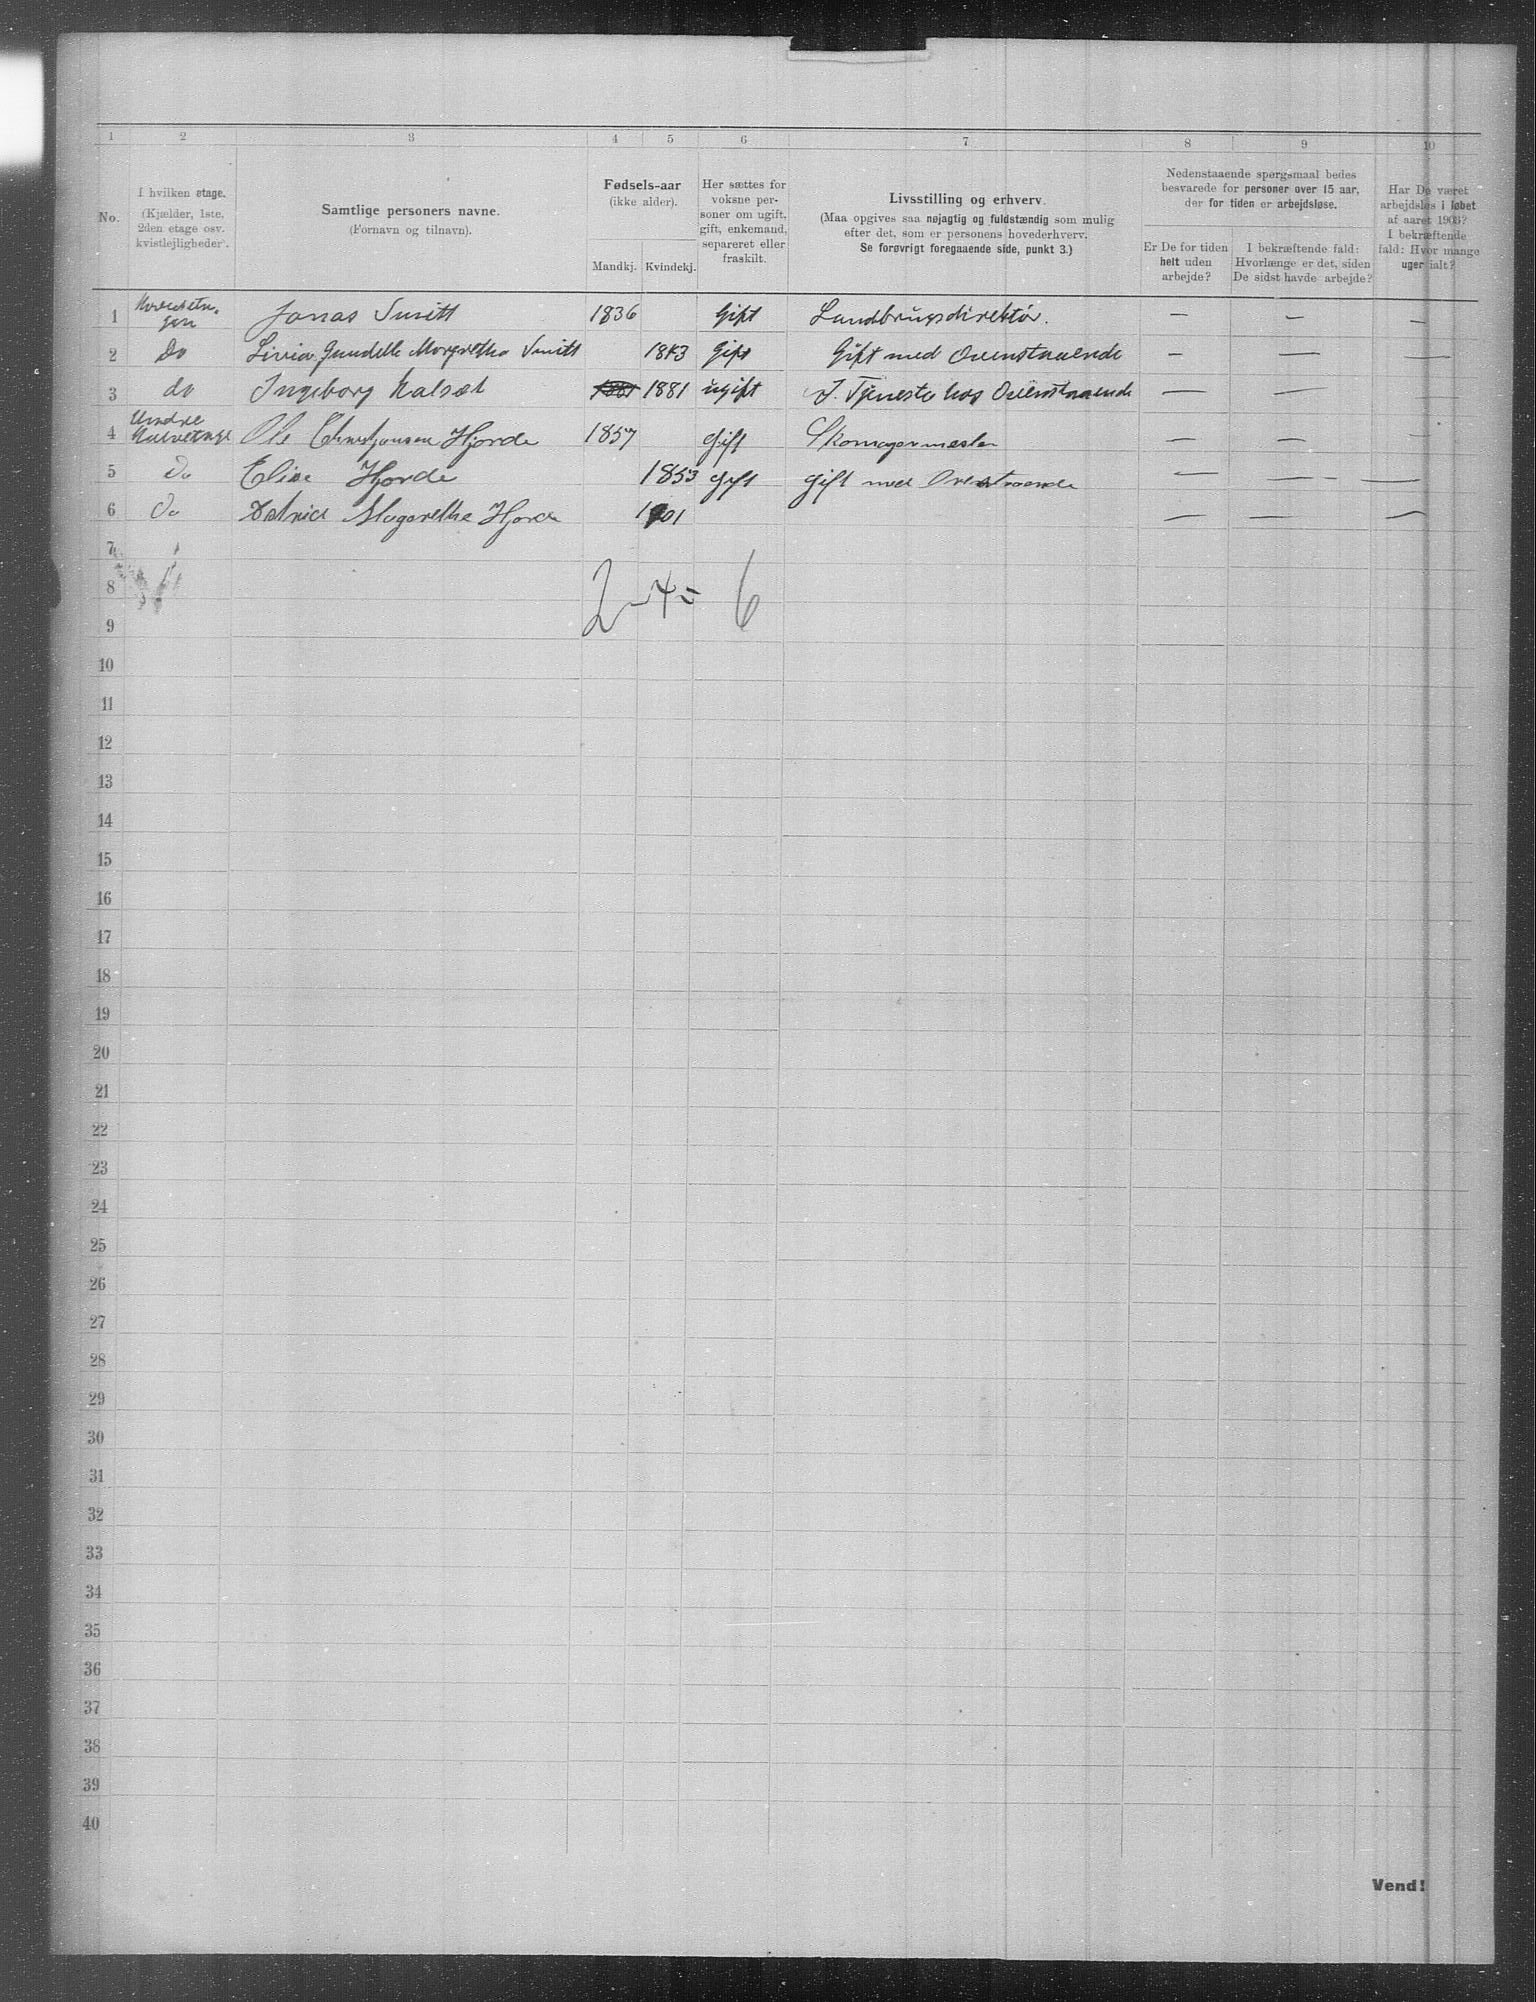 1 2 3 4 5 6 7 8 9 10
No.
I hvilken etage.
(Kjælder, 1ste,
2den etage osv.
kvistlejligheder).
Samtlige personers navne.
(Fornavn og tilnavn).
Fødsels-aar
(ikke alder).
Mandkj. Kvindekj.
Her sættes for
voksne per-
soner om ugift,
gift, enkemand,
separeret eller
fraskilt.
Livsstilling og erhverv.
(Maa opgives saa nøjagtig og fuldstændig som mulig
efter det, som er personens hovederhverv.
Se forøvrigt foregaaende side, punkt 3.)
Nedenstaaende spørgsmaal bedes
besvarede for personer over 15 aar,
der for tiden er arbejdsløse.
Er De for tiden
helt uden
arbejde?
I bekræftende fald:
Hvorlænge er det, siden
De sidst havde arbejde?
Har De været
arbejdsløs i løbet
af aaret 1903?
I bekræftende
fald: Hvor mange
uger ialt?
1 Jonas Smitt 1836 Gift Landbrugsdirektør. — — —
2 Do Livia Margretha Smitt 18 3 Gift Gift med Ovenstaaende — — —
3 do Ingeborg Kalsæt 1881 ugift I. Tjeneste hos Ovenstaaende — — —
4 Ole Christjansen Hjorde 1857 Gift Skomagermester — — —
5 Do Elise Hjorde 1853 gift gift med Ovenstaaende — — —
6 Do Margrethe Hjorde 1901 — — —
7
8 2 – 4 = 6
9
10
11
12
13
14
15
16
17
18
19
20
21
22
23
24
25
26
27
28
29
30
31
32
33
34
35
36
37
38
39
40
Vend!